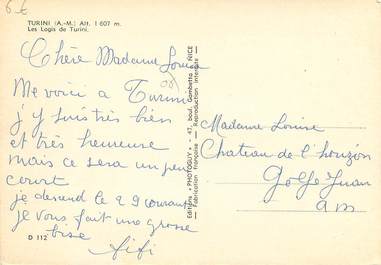 6 €
TURINI (A.-M.) Alt. 1 607 m.
Les Logis de Turini.
Chère Madame Louise
Me voici a Turini
j'y suis très bien
et très heureuse
mais ce sera un peu
court
je descend le 29 courant
je vous fait une grosse
bise
fifi
D 112
Editions « PHOTOGUY » - 47, boul. Gambetta - NICE
Fabrication française - Reproduction interdite
Madame Louise
Chateau de l'
Golfe Juan
a m